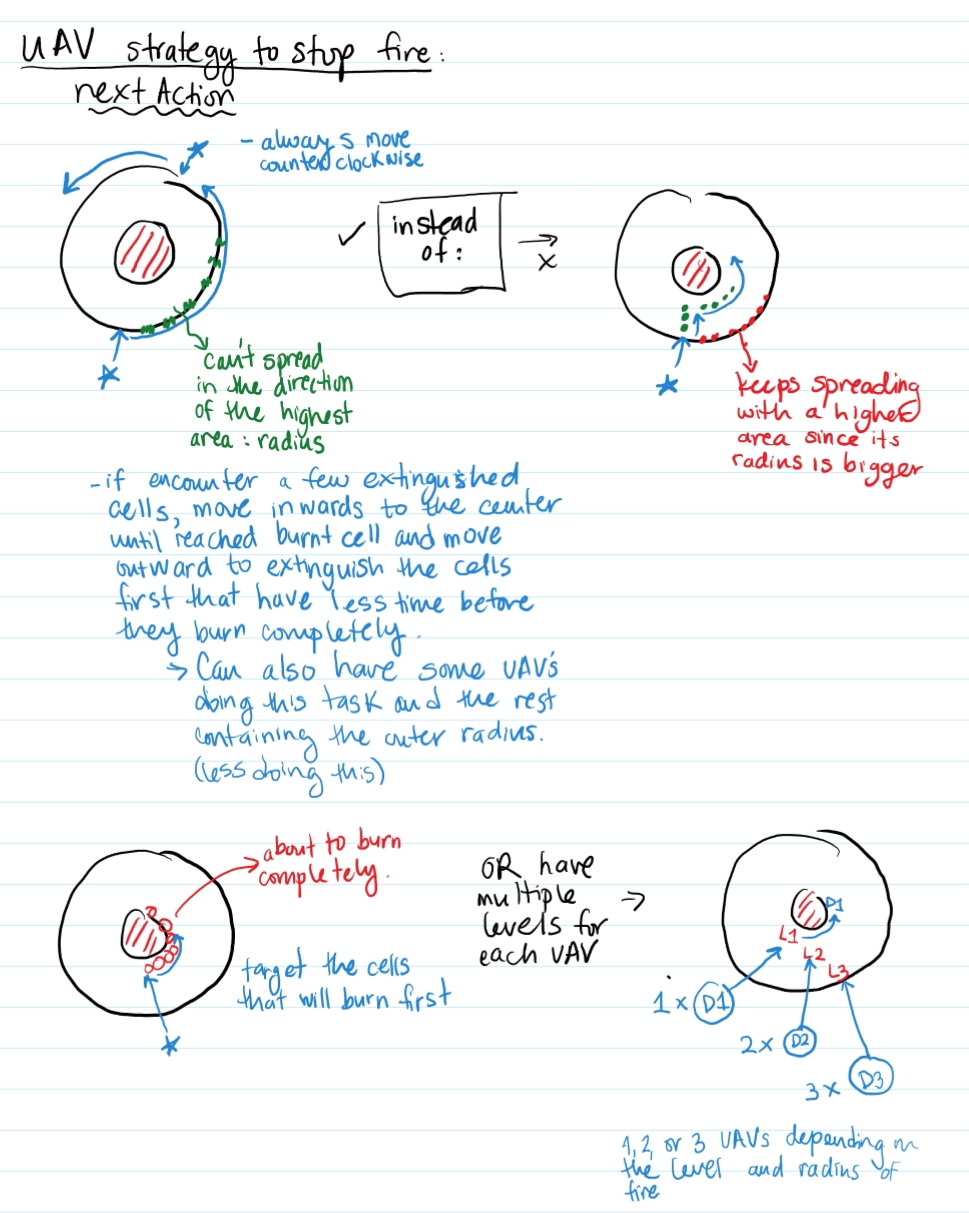 UAV strategy to stop fire:
next Action
- always move
counterclockwise
✓
instead
of:
→
x
can't spread
in the direction
of the highest
area : radius
keeps spreading
with a higher
area since its
radius is bigger
- if encounter a few extinguished
cells, move inwards to the center
until reached burnt cell and move
outward to extinguish the cells
first that have less time before
they burn completely.
→ Can also have some UAV's
doing this task and the rest
containing the outer radius.
(less doing this)
about to burn
completely.
target the cells
that will burn first
OR have
multiple →
levels for
each UAV
D1
L1
L2
L3
1 x D1
2 x D2
3 x D3
1, 2, or 3 UAVs depending on
the level and radius of
fire